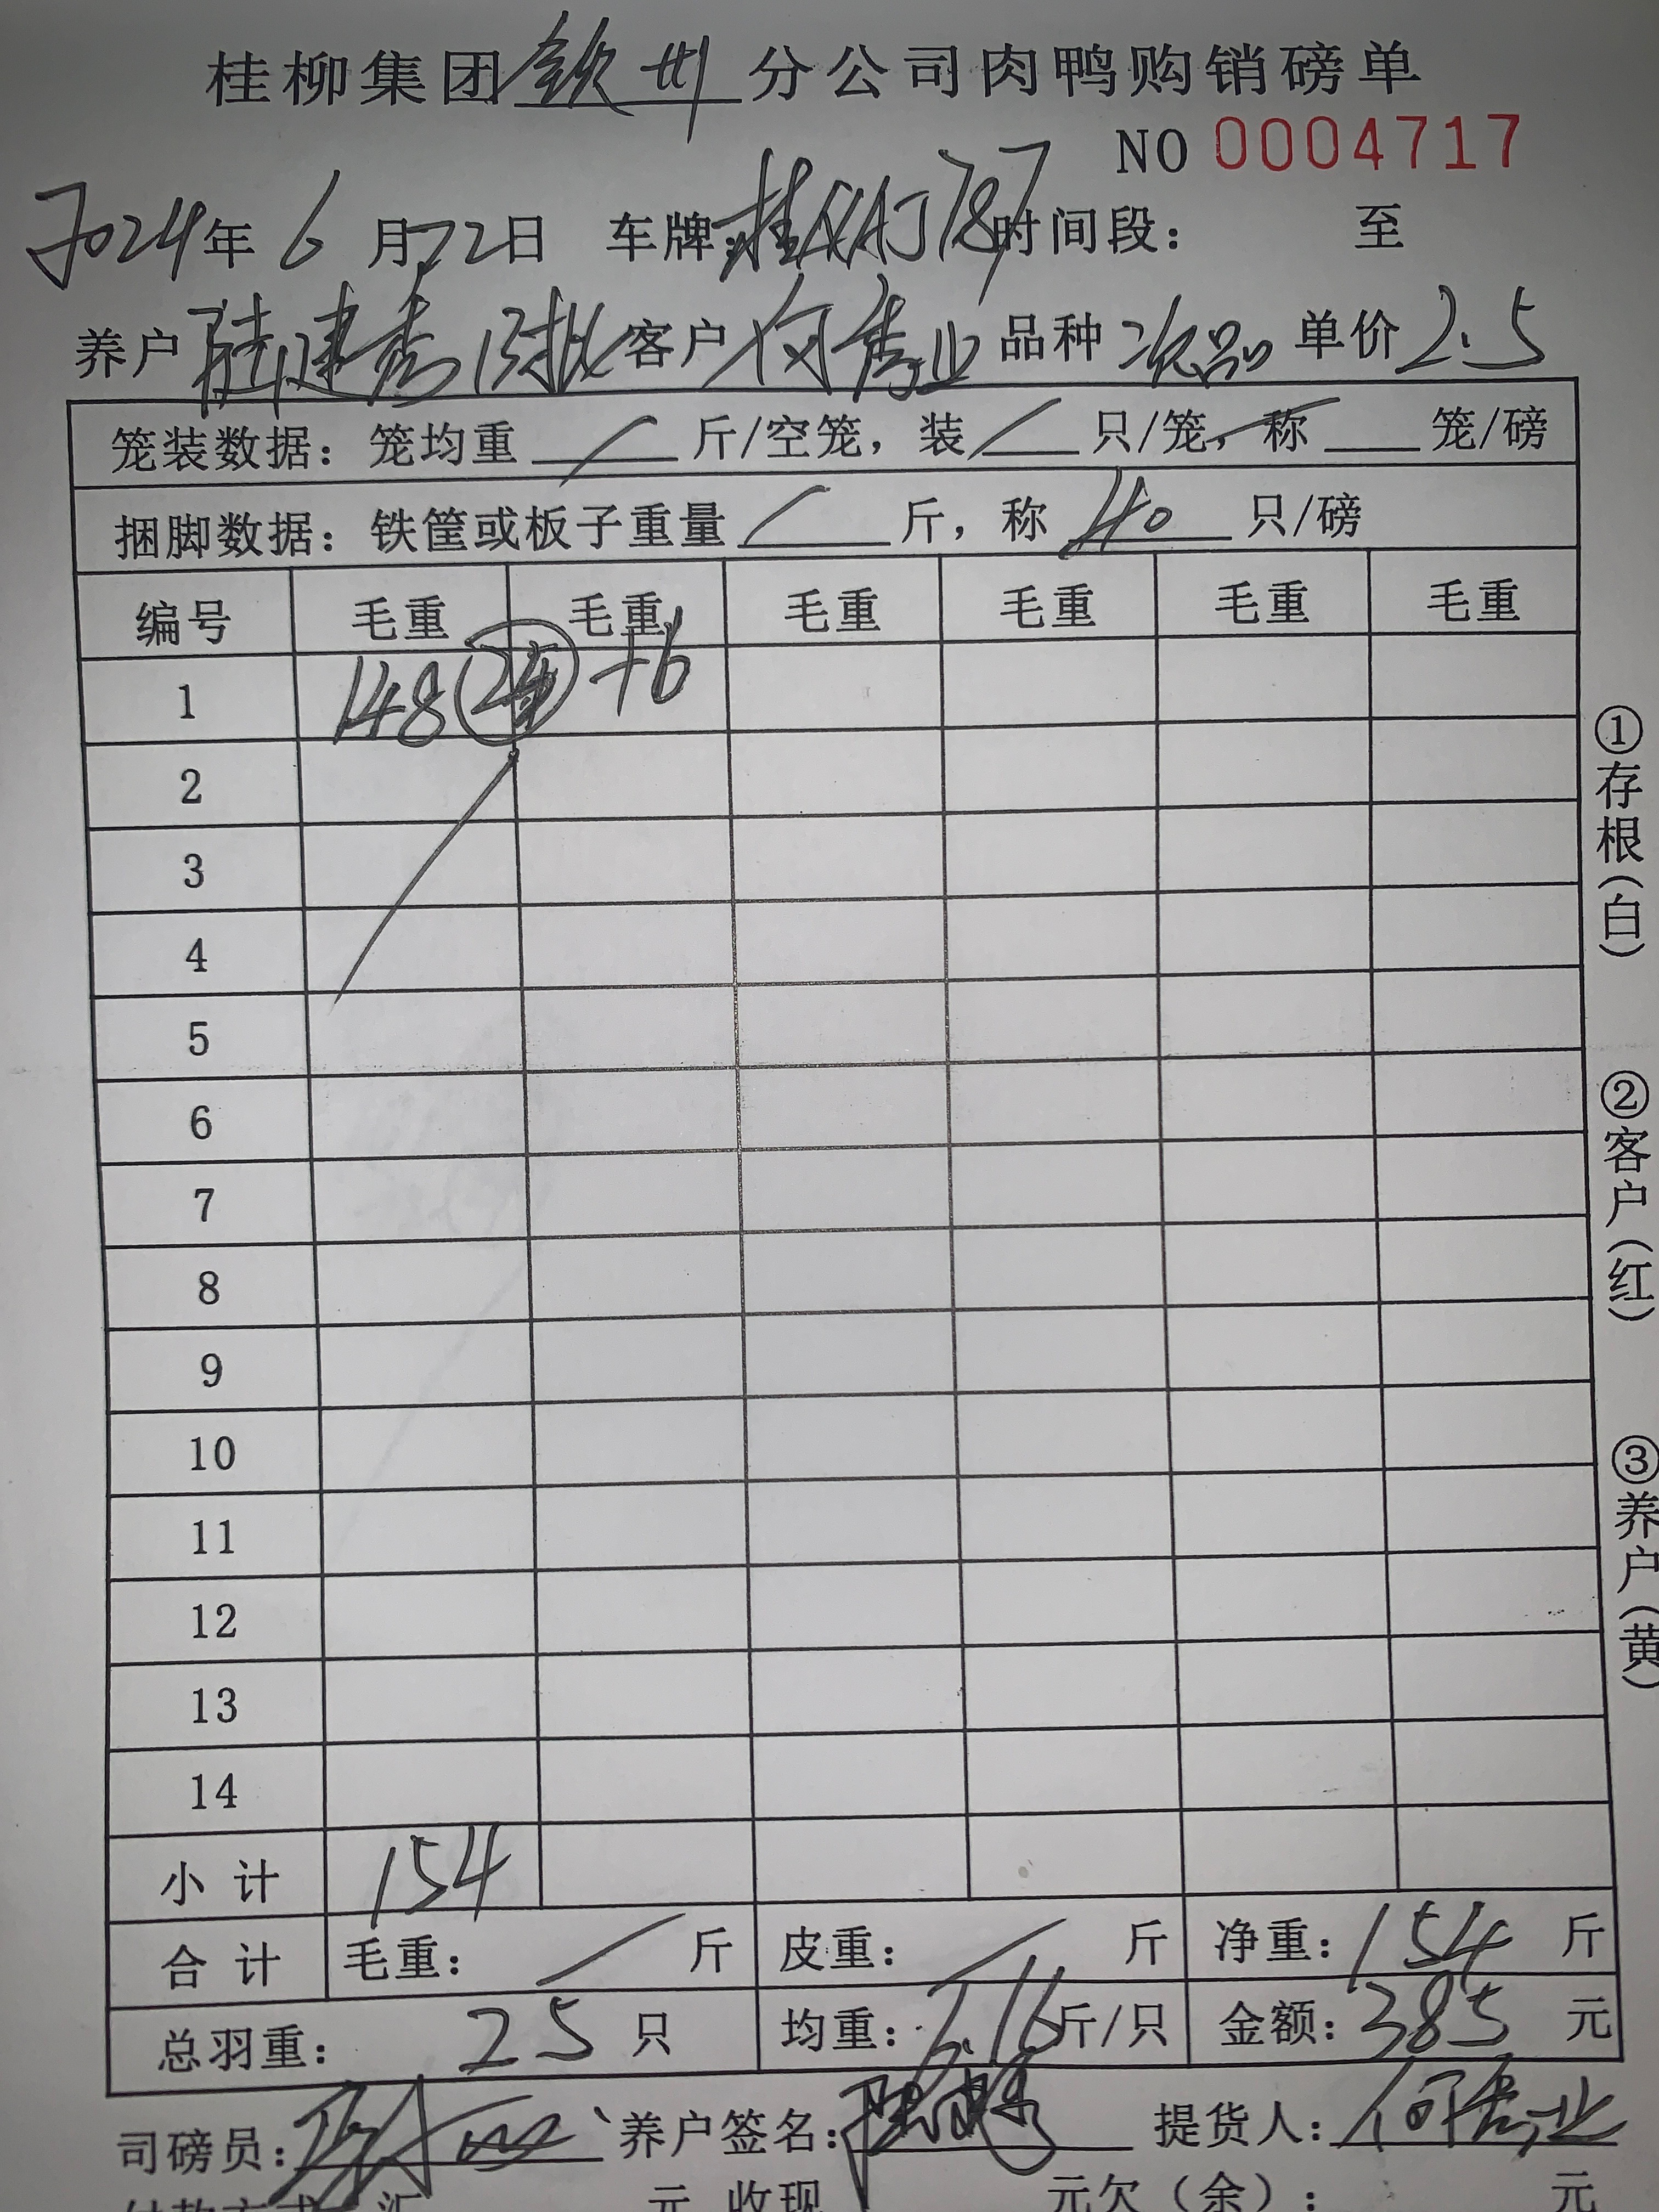 桂柳集团钦州分公司肉鸭购销磅单
NO 0004717
2024年 6 月22日 车牌: 时间段: 至
养户 陆建秀 13批 客户 何秀业 品种 次品 单价 2.5
笼装数据: 笼均重 / 斤/空笼, 装 / 只/笼, 称 笼/磅
捆脚数据: 铁筐或板子重量 / 斤, 称 40 只/磅
编号 毛重 毛重 毛重 毛重 毛重 毛重
1 148 +6
2
3
4
5
6
7
8
9
10
11
12
13
14
小计 154
合计 毛重: / 斤 皮重: / 斤 净重: 154 斤
总羽重: 25 只 均重: 6.16 斤/只 金额: 385 元
司磅员: 养户签名: 提货人: 何秀业
付款方式 汇 元 收现 元欠(余): 元
①存根(白)
②客户(红)
③养户(黄)